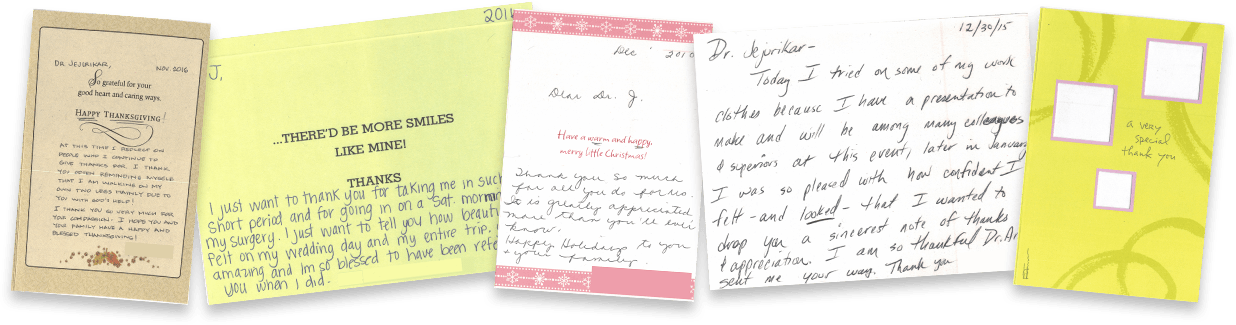 DR. JEJURIKAR,
NOV. 2016
So grateful for your
good heart and caring ways.
HAPPY THANKSGIVING!
AT THIS TIME I REFLECT ON
PEOPLE WHO I CONTINUE TO
GIVE THANKS FOR. I THANK
YOU OFTEN REMINDING MYSELF
THAT I AM WALKING ON MY
OWN TWO LEGS MAINLY DUE TO
YOU WITH GOD'S HELP!
I THANK YOU SO VERY MUCH FOR
YOUR COMPASSION. I HOPE YOU AND
YOUR FAMILY HAVE A HAPPY AND
BLESSED THANKSGIVING!
J,
...THERE'D BE MORE SMILES
LIKE MINE!
THANKS
I just want to thank you for taking me in such
short period and for going in on a Sat. morning
my surgery. I just want to tell you how beauti
felt on my wedding day and my entire trip.
amazing and Im so blessed to have been refe
you when I did.
Dec 2010
Dear Dr. J.
Have a warm and happy,
merry little Christmas!
Thank you so much
for all you do for us.
It is greatly appreciated
more than you'll ever
know.
Happy Holidays to you
& your family.
12/30/15
Dr. Jejurikar-
Today I tried on some of my work
clothes because I have a presentation to
make and will be among many colleagues
& superiors at this event, later in January
I was so pleased with how confident I
felt - and looked - that I wanted to
drop you a sincerest note of thanks
& appreciation. I am so thankful Dr. Ar
sent me your way. Thank you
a very
special
thank you